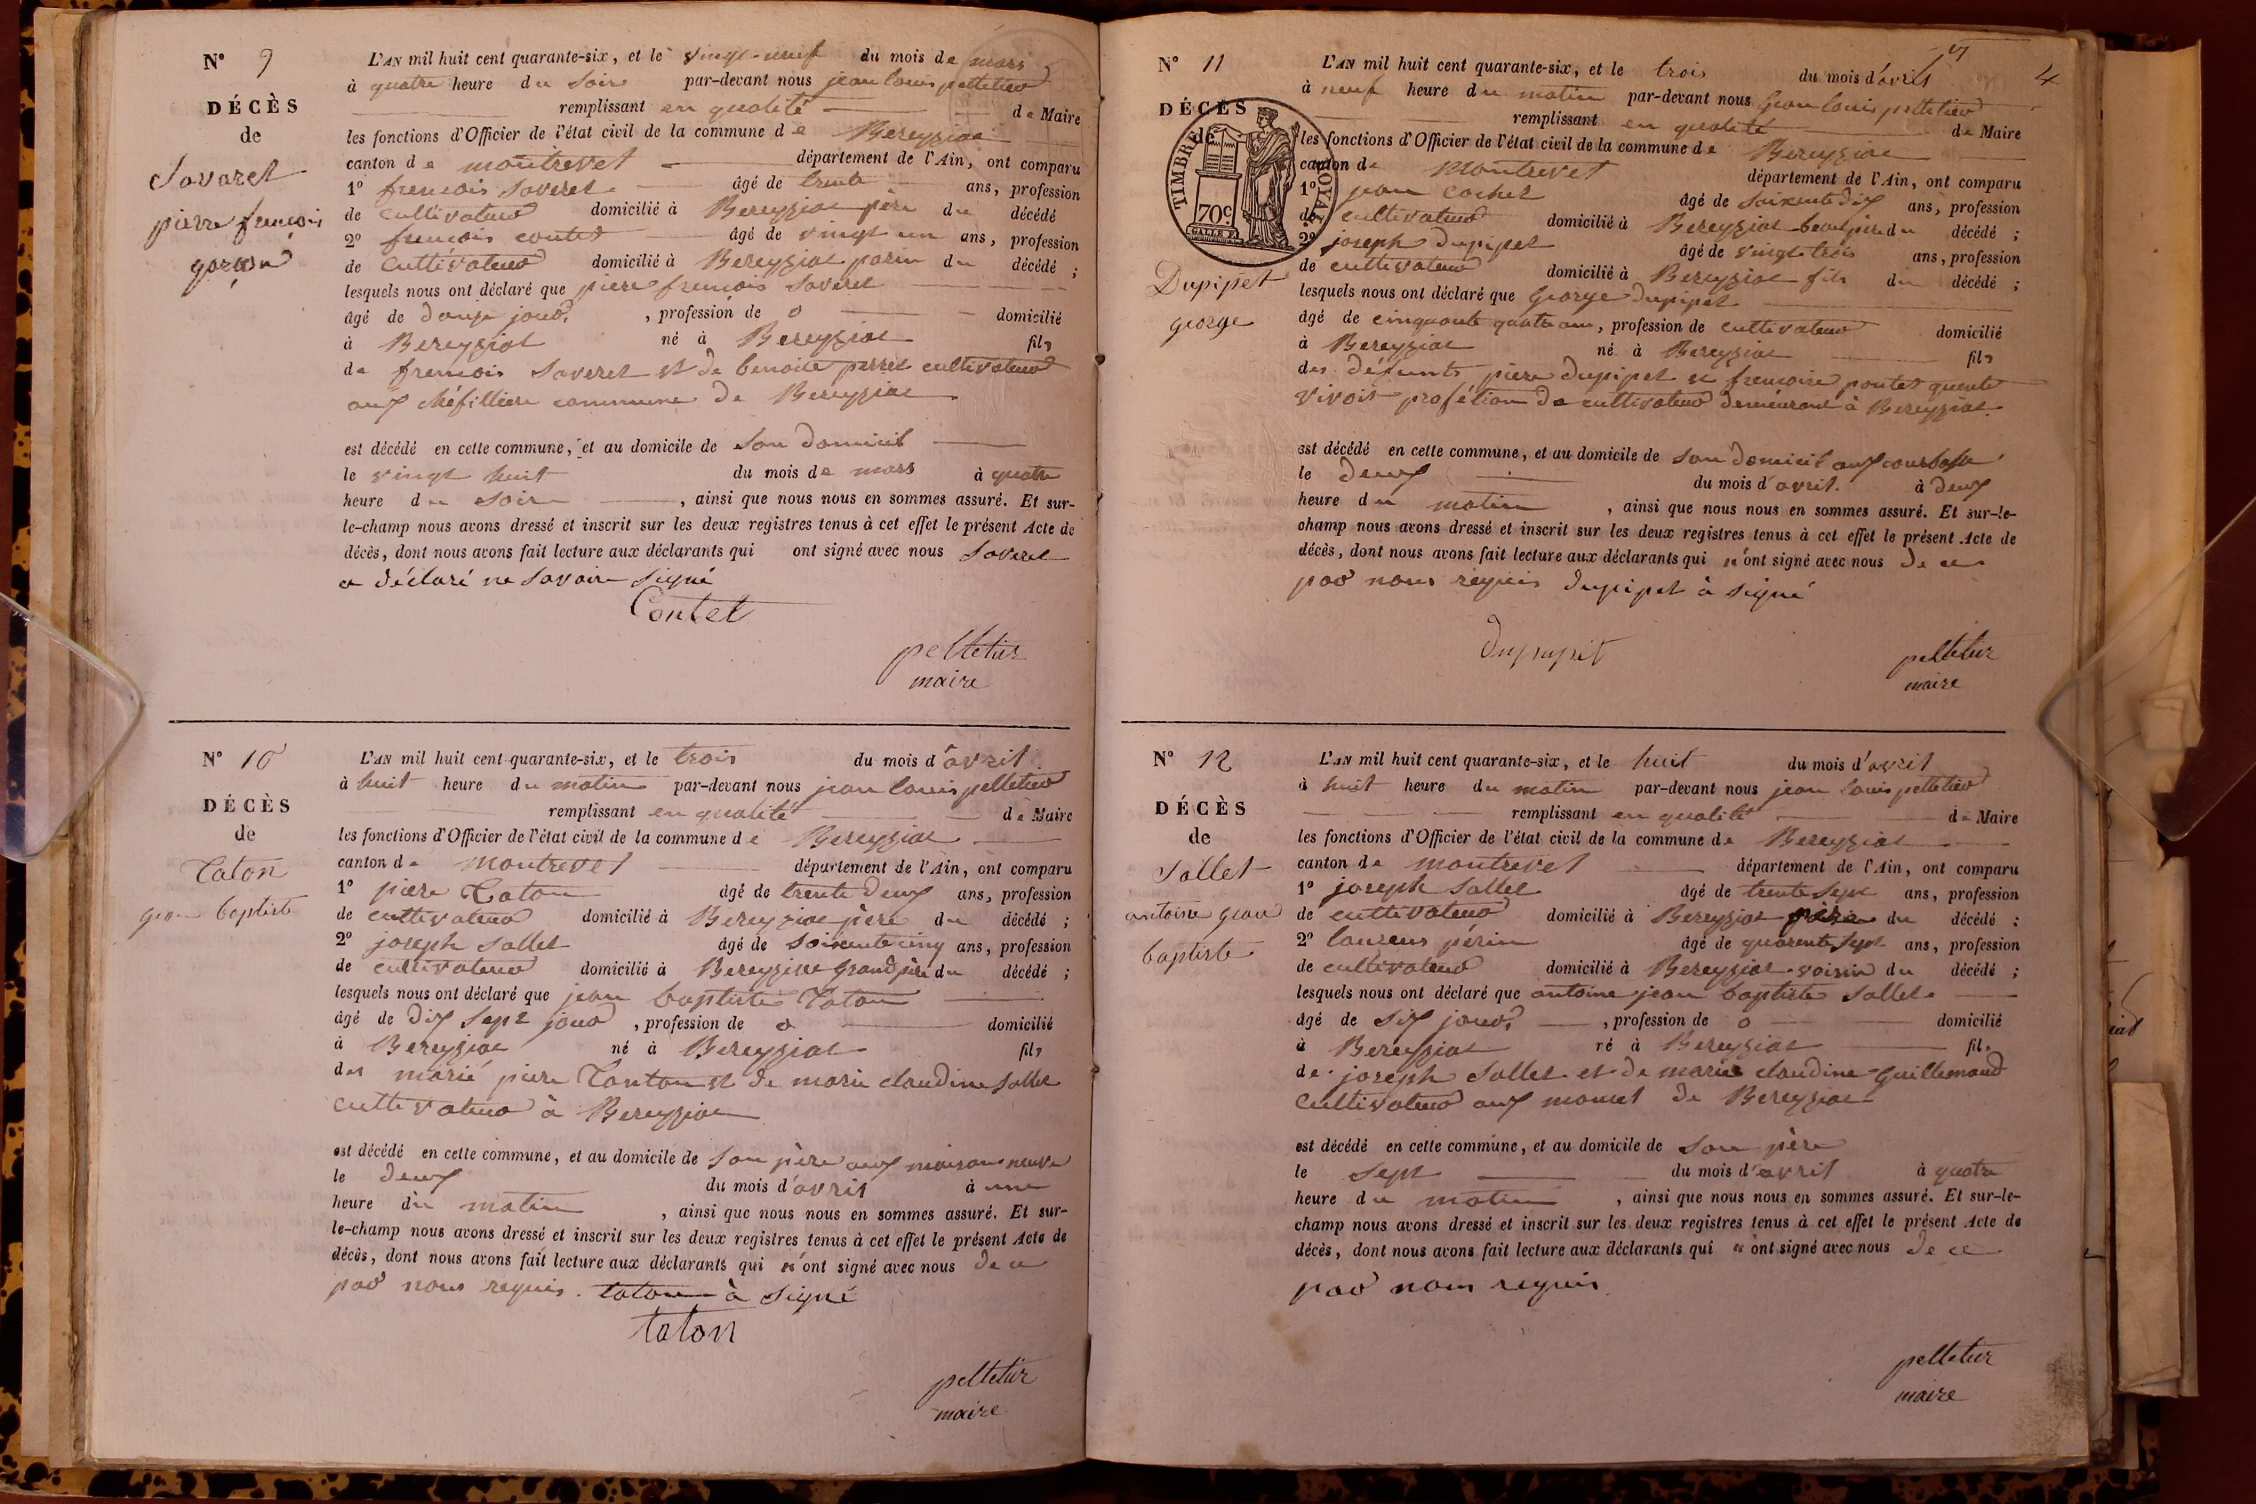 N° 9
DÉCÈS
de
Savaret
pierre francois
garçon
L'AN mil huit cent quarante-six, et le vingt-neuf du mois de mars
à quatre heure du soir par-devant nous jean louis pelletier
remplissant en qualité de Maire
les fonctions d'Officier de l'état civil de la commune de Bereyziat
canton de montrevel département de l'Ain, ont comparu
1° francois Saveret âgé de trente ans, profession
de cultivateur domicilié à Bereyziat père du décédé
2° francois contet âgé de vingt un ans, profession
de cultivateur domicilié à Bereyziat parin du décédé ;
lesquels nous ont déclaré que piere francois Saveret
âgé de douze jour, profession de o domicilié
à Bereyziat né à Bereyziat fils
de francois Saveret et de benoite perret cultivateur
aux chéfilliere commune de Bereyziat
est décédé en cette commune, et au domicile de son domicil
le vingt huit du mois de mars à quatre
heure du soir, ainsi que nous nous en sommes assuré. Et sur-
le-champ nous avons dressé et inscrit sur les deux registres tenus à cet effet le présent Acte de
décès, dont nous avons fait lecture aux déclarants qui ont signé avec nous Saveret
a déclaré ne savoir signé
Contet
pelletier
maire
N° 10
DÉCÈS
de
Taton
gean baptiste
L'AN mil huit cent quarante-six, et le trois du mois d'avril
à huit heure du matin par-devant nous jean louis pelletier
remplissant en qualité de Maire
les fonctions d'Officier de l'état civil de la commune de Bereyziat
canton de montrevel département de l'Ain, ont comparu
1° piere Taton âgé de trente deux ans, profession
de cultivateur domicilié à Bereyziat père du décédé ;
2° joseph Sallet âgé de soixente cinq ans, profession
de cultivateur domicilié à Bereyziat grand père du décédé ;
lesquels nous ont déclaré que jean baptiste Taton
âgé de dix sept jour, profession de o domicilié
à Bereyziat né à Bereyziat fils
des marié piere Tanton et de marie claudine Sallet
cultivateur à Bereyziat
est décédé en cette commune, et au domicile de son père aux maisons neuve
le deux du mois d'avril à une
heure du matin, ainsi que nous nous en sommes assuré. Et sur-
le-champ nous avons dressé et inscrit sur les deux registres tenus à cet effet le présent Acte de
décès, dont nous avons fait lecture aux déclarants qui n'ont signé avec nous de ce
par nous requis. taton à signé
taton
pelletier
maire
4
N° 11
DÉCÈS
de
TIMBRE ROYAL
70c
Dupipet
george
L'AN mil huit cent quarante-six, et le trois du mois d'avril
à neuf heure du matin par-devant nous jean louis pelletier
remplissant en qualité de Maire
les fonctions d'Officier de l'état civil de la commune de Bereyziat
canton de Montrevel département de l'Ain, ont comparu
1° jean cochet âgé de soixente dix ans, profession
de cultivateur domicilié à Bereyziat beaupère du décédé ;
2° joseph dupipet âgé de vingt trois ans, profession
de cultivateur domicilié à Bereyziat fils du décédé ;
lesquels nous ont déclaré que George dupipet
âgé de cinquante quatre ans, profession de cultivateur domicilié
à Bereyziat né à Bereyziat fils
des défunts piere dupipet et francoise pontet quente
vivoit profétion de cultivateur demeurant à Bereyziat
est décédé en cette commune, et au domicile de son domicil aux
le deux du mois d'avril à deux
heure du matin, ainsi que nous nous en sommes assuré. Et sur-le-
champ nous avons dressé et inscrit sur les deux registres tenus à cet effet le présent Acte de
décès, dont nous avons fait lecture aux déclarants qui n'ont signé avec nous de ce
par nous requis dupipet à signé
Dupupet
pelletier
maire
N° 12
DÉCÈS
de
Sallet
antoine gean
baptiste
L'AN mil huit cent quarante-six, et le huit du mois d'avril
à huit heure du matin par-devant nous jean louis pelletier
remplissant en qualité de Maire
les fonctions d'Officier de l'état civil de la commune de Bereyziat
canton de montrevel département de l'Ain, ont comparu
1° joseph Sallet âgé de trente sept ans, profession
de cultivateur domicilié à Bereyziat père du décédé ;
2° laurens périn âgé de quarente sept ans, profession
de cultivateur domicilié à Bereyziat voisin du décédé ;
lesquels nous ont déclaré que antoine jean baptiste Sallet
âgé de six jour, profession de o domicilié
à Bereyziat né à Bereyziat fils
de joseph Sallet et de marie claudine Guillemaud
cultivateur aux monet de Bereyziat
est décédé en cette commune, et au domicile de son père
le sept du mois d'avril à quatre
heure du matin, ainsi que nous nous en sommes assuré. Et sur-le-
champ nous avons dressé et inscrit sur les deux registres tenus à cet effet le présent Acte de
décès, dont nous avons fait lecture aux déclarants qui n'ont signé avec nous de ce
par nous requis.
pelletier
maire